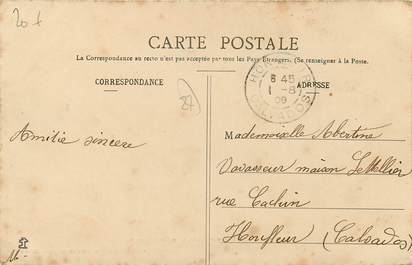 20 f
CARTE POSTALE
La Correspondance au recto n'est pas acceptée par tous les Pays Étrangers. (Se renseigner à la Poste.
CORRESPONDANCE
ADRESSE
HONFLEUR
6 45
1 -8
09
CALVADOS
Amitié sincère
Mademoiselle Albertine
Vavasseur maison LeMellier
rue Cachin
Honfleur (Calvados)